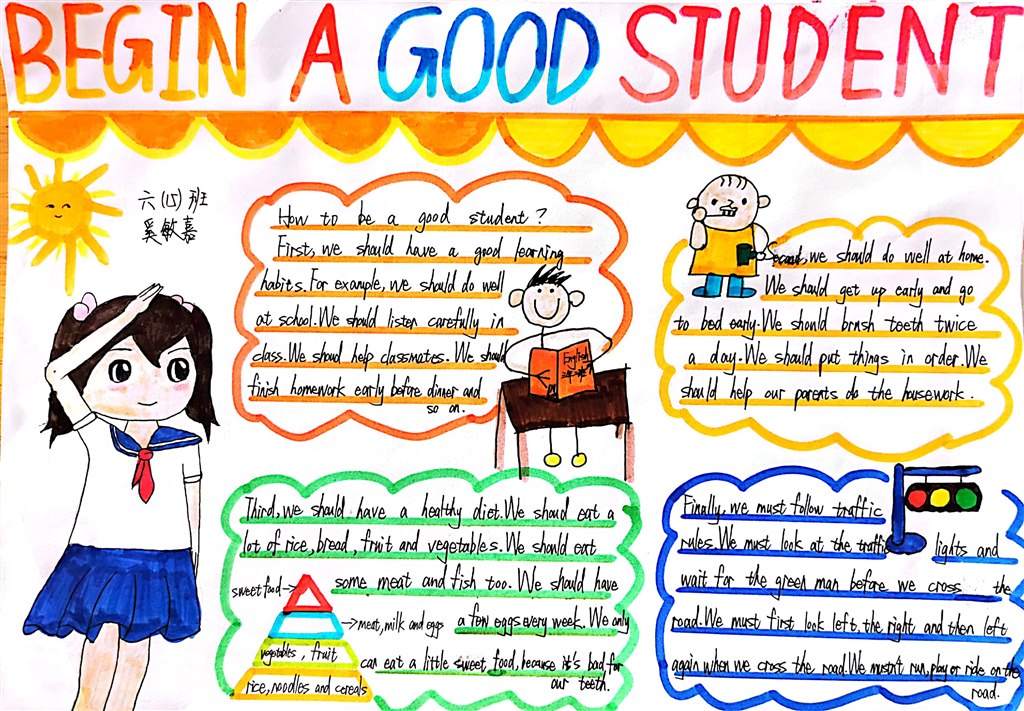 BEGIN A GOOD STUDENT
六(15)班
奚敏嘉
How to be a good student?
First, we should have a good learning
habits. For example, we should do well
at school. We should listen carefully in
class. We shoud help classmates. We should
finish homework early before dinner and
so on.
English
Second, we should do well at home.
We should get up early and go
to bed early. We should brnsh teeth twice
a day. We should put things in order. We
should help our parents do the housework.
Third, we should have a healthy diet. We shoud eat a
lot of rice, bread, fruit and vegetables. We should eat
some meat and fish too. We should have
a few eggs every week. We only
can eat a little sweet food, because it's bad for
our teeth.
sweet food
meat, milk and eggs
vegetables, fruit
rice, noodles and cereals
Finally, we must follow traffic
rules. We must look at the traffic
lights and
wait for the green man before we cross the
road. We must first look left, the right and then left
again when we cross the road. We mustn't run, play or ride on the
road.